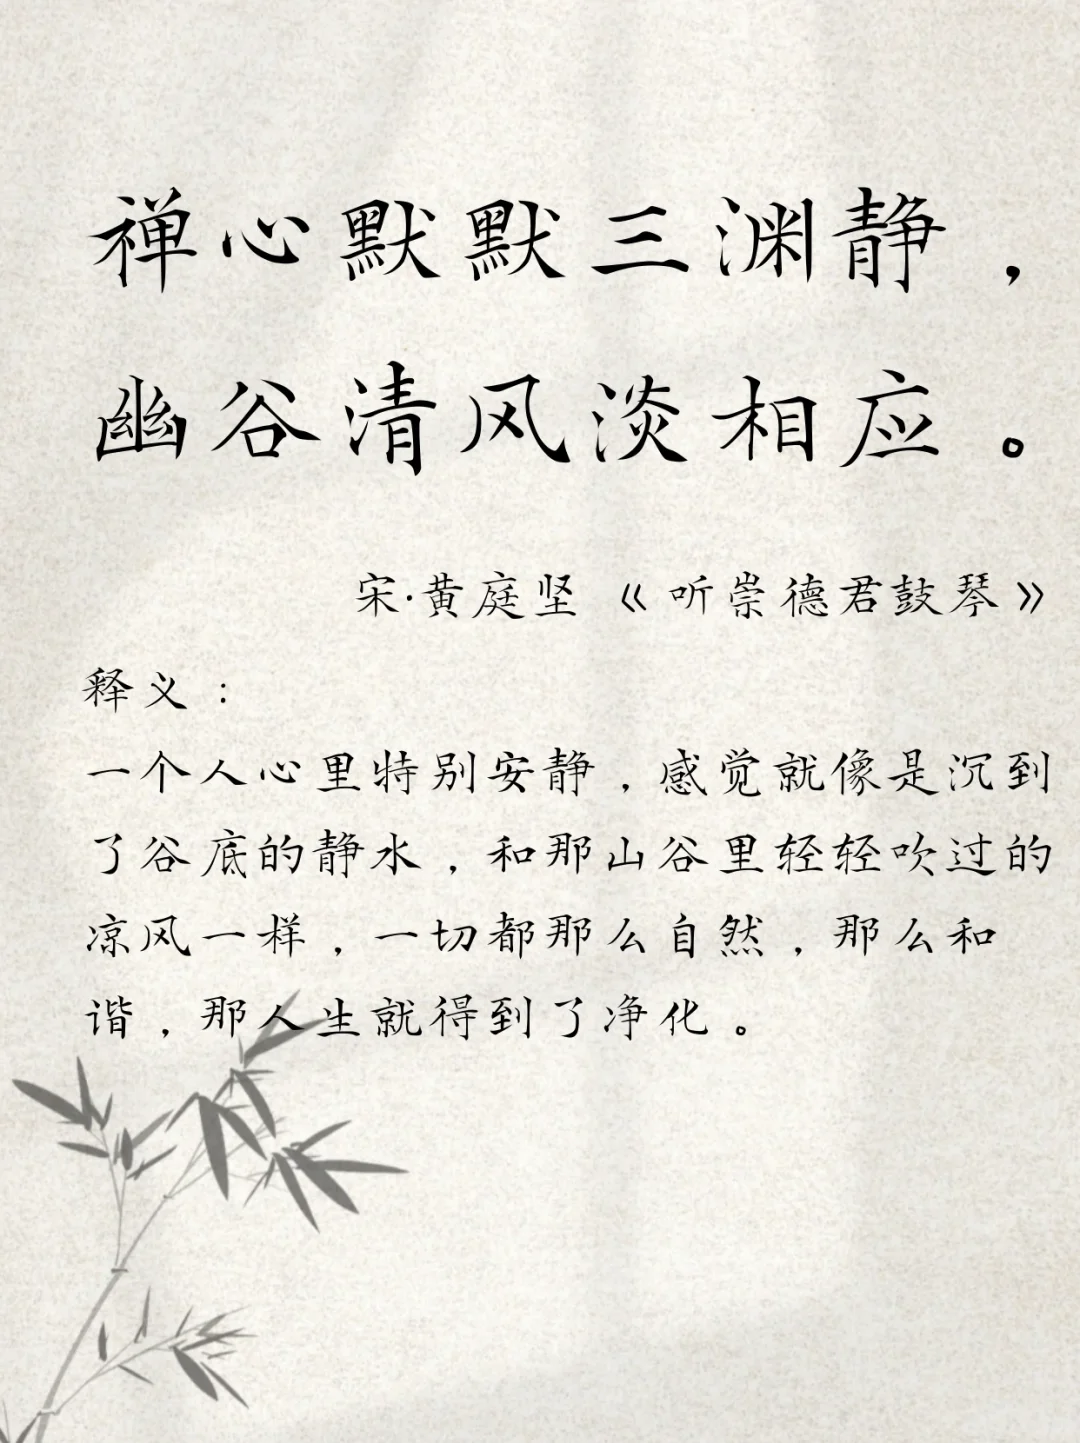 禅心默默三渊静，
幽谷清风淡相应。
宋·黄庭坚《听崇德君鼓琴》
释义：
一个人心里特别安静，感觉就像是沉到
了谷底的静水，和那山谷里轻轻吹过的
凉风一样，一切都那么自然，那么和
谐，那人生就得到了净化。